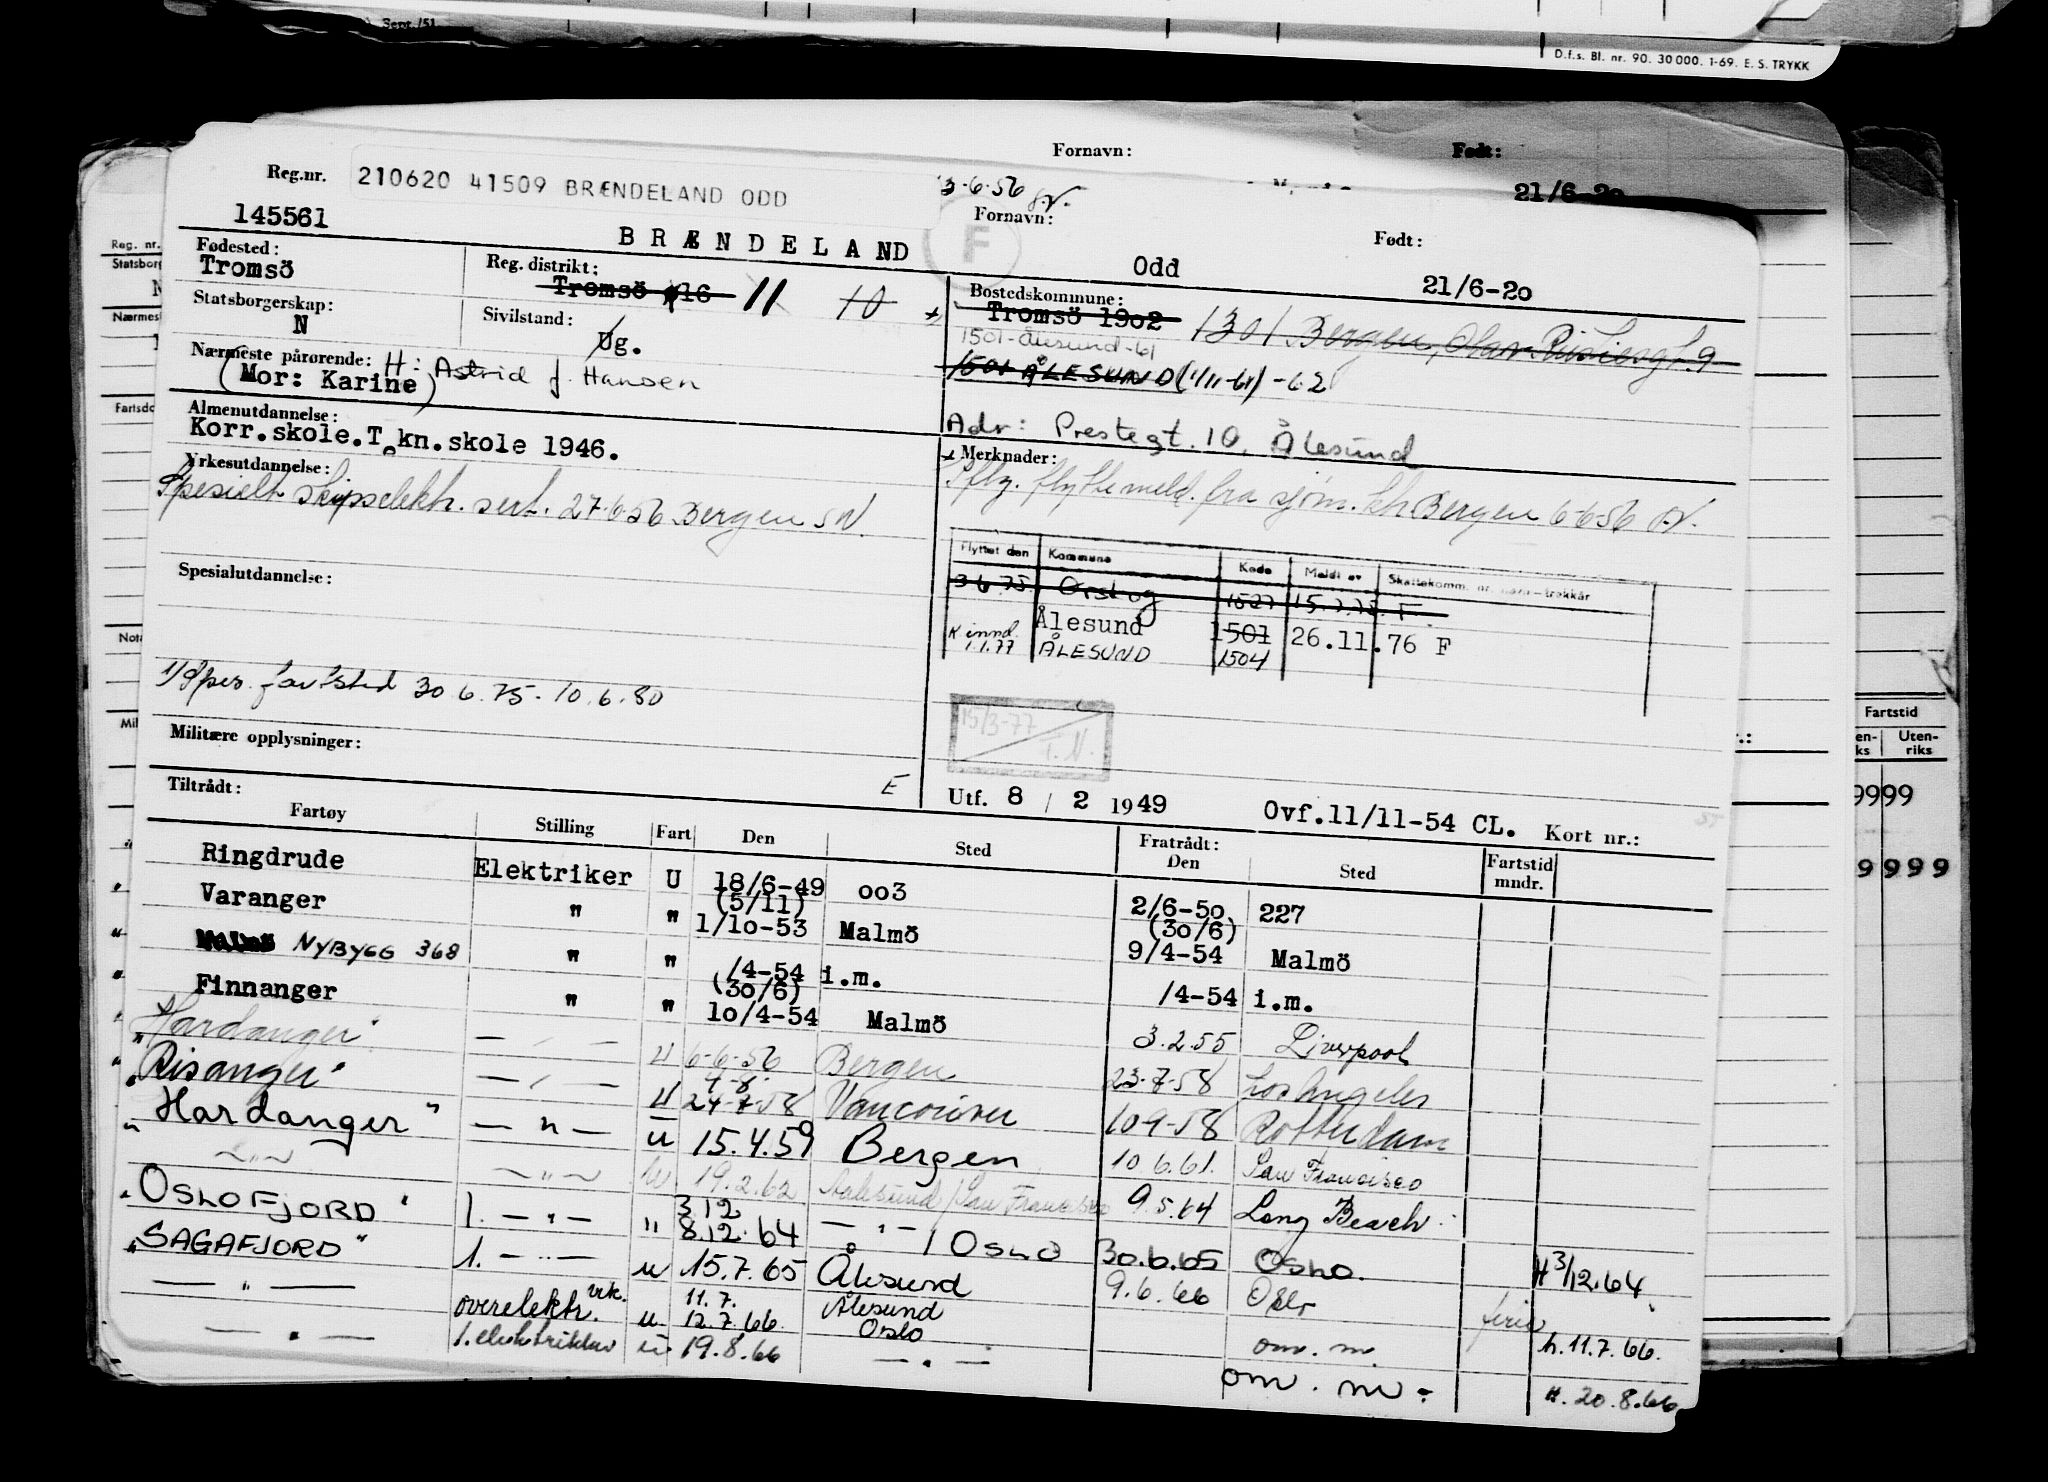 Sept./51
D.f.s. Bl. nr. 90. 30 000. 1-69. E. S. TRYKK
Fornavn: Født:
21/6-20
Reg.nr. 210620 41509 BRÆNDELAND ODD 3-6-56
145561 BRÆNDELAND F Fornavn: Odd Født: 21/6-20
Fødested: Tromsö
Reg. distrikt: Tromsö 16 11 10
Bostedskommune: Tromsö 1902 1301 Bergen,
1501-Ålesund-61
1501 ÅLESUND (1/11-61) -62
Statsborgerskap: N
Sivilstand: Ug.
Nærmeste pårørende: H: Astrid f. Hansen
(Mor: Karine)
Adr: Prestegt. 10, Ålesund
Almenutdannelse:
Korr.skole.Tekn.skole 1946.
Yrkesutdannelse:
Spesielt skipselektr. sert. 27-6-56 Bergen SN.
Merknader:
Iflg. flyttemeld. fra sjøm.ktr. Bergen 6-6-56
Flyttet den Kommune Kode Meldt av Skattekomm. nr. navn-trekkår
3.6.75. Ørskog 1527 15.7.75. F
Ålesund 1501 26.11.76 F
K.innd. 1.1.77 ÅLESUND 1504
Spesialutdannelse:
1) Spes. fartstid 30.6.75 - 10.6.80
15/3-77
T.N.
Militære opplysninger:
E
Utf. 8 / 2 1949 Ovf.11/11-54 CL. Kort nr.:
Tiltrådt:
Fartøy Stilling Fart Den Sted Fratrådt: Den Sted Fartstid mndr.
Ringdrude Elektriker U 18/6-49 003 2/6-50 227
(5/11) (30/6)
Varanger " " 1/10-53 Malmö 9/4-54 Malmö
Malmö NYBYGG 368 " " /4-54 i.m. /4-54 i.m.
(30/6)
Finnanger " " 10/4-54 Malmö 3.2.55 Liverpool
"Hardanger" — " — U 6-6-56 Bergen 23-7-58 Los Angeles
"Risanger" — " — U 24-7-58 4-8. Vancouver 10-9-58 Rotterdam
"Hardanger" — " — U 15.4.59 Bergen 10.6.61. San Francisco
— " — — " — U 19.2.62 Aalesund/San Francisco 9.5.64 Long Beach
"OSLOFJORD" 1. — " — " 3.12 8.12.64 — " — / Oslo 30.6.65 OSLO. H 3/12.64
"SAGAFJORD" 1. — " — U 15.7.65 Ålesund 9.6.66 Oslo ferie
— " — overelektr. vik. U 11.7. 12.7.66. Ålesund Oslo om. m. h. 11.7.66.
— " — 1. elektriker U 19.8.66 — " — om. m. H. 20.8.66
Reg. nr.
Statsborg
Nærmest
Fartsdo
Nota
Mil
Fartstid
en-ks Uten-riks
9999
9999